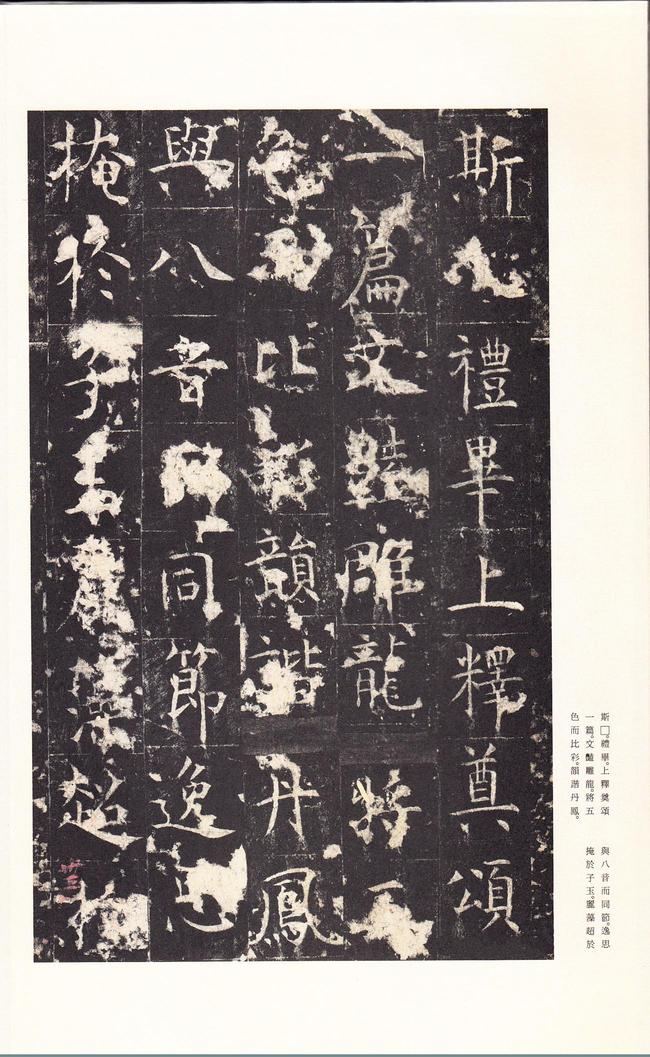 斯禮畢上釋奠頌
一篇文豔雕龍將五
色而比彩韻諧丹鳳
與八音而同節逸思
掩於子玉麗藻超於
斯□禮畢。上釋奠頌
一篇。文豔雕龍。將五
色而比彩。韻諧丹鳳。
與八音而同節。逸思
掩於子玉。麗藻超於